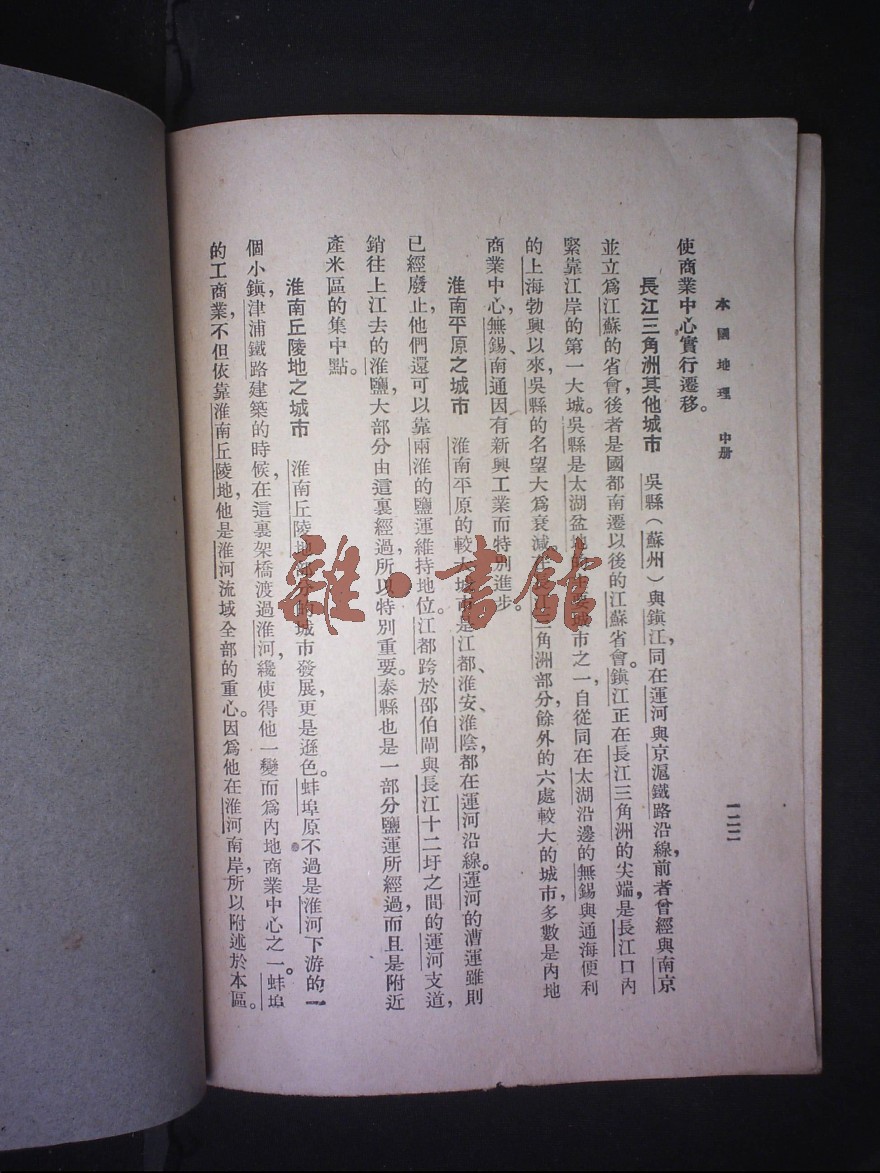 本國地理 中册
一二二
使商業中心實行遷移。
長江三角洲其他城市 吳縣（蘇州）與鎮江，同在運河與京滬鐵路沿線，前者曾經與南京
並立爲江蘇的省會，後者是國都南遷以後的江蘇省會。鎮江正在長江三角洲的尖端，是長江口內
緊靠江岸的第一大城。吳縣是太湖盆地 城市之一，自從同在太湖沿邊的無錫與通海便利
的上海勃興以來，吳縣的名望大爲衰減。 三角洲部分，餘外的六處較大的城市，多數是內地
商業中心，無錫、南通因有新興工業而特別進步。
淮南平原之城市 淮南平原的較大城市是江都、淮安、淮陰，都在運河沿線。運河的漕運雖則
已經廢止，他們還可以靠兩淮的鹽運維持地位。江都跨於邵伯閘與長江十二圩之間的運河支道，
銷往上江去的淮鹽，大部分由這裏經過，所以特別重要。泰縣也是一部分鹽運所經過，而且是附近
產米區的集中點。
淮南丘陵地之城市 淮南丘陵地部分的城市發展，更是遜色。蚌埠原不過是淮河下游的一
個小鎮，津浦鐵路建築的時候，在這裏架橋渡過淮河，纔使得他一變而爲內地商業中心之一。蚌埠
的工商業，不但依靠淮南丘陵地，他是淮河流域全部的重心。因爲他在淮河南岸，所以附述於本區。
雜·書館